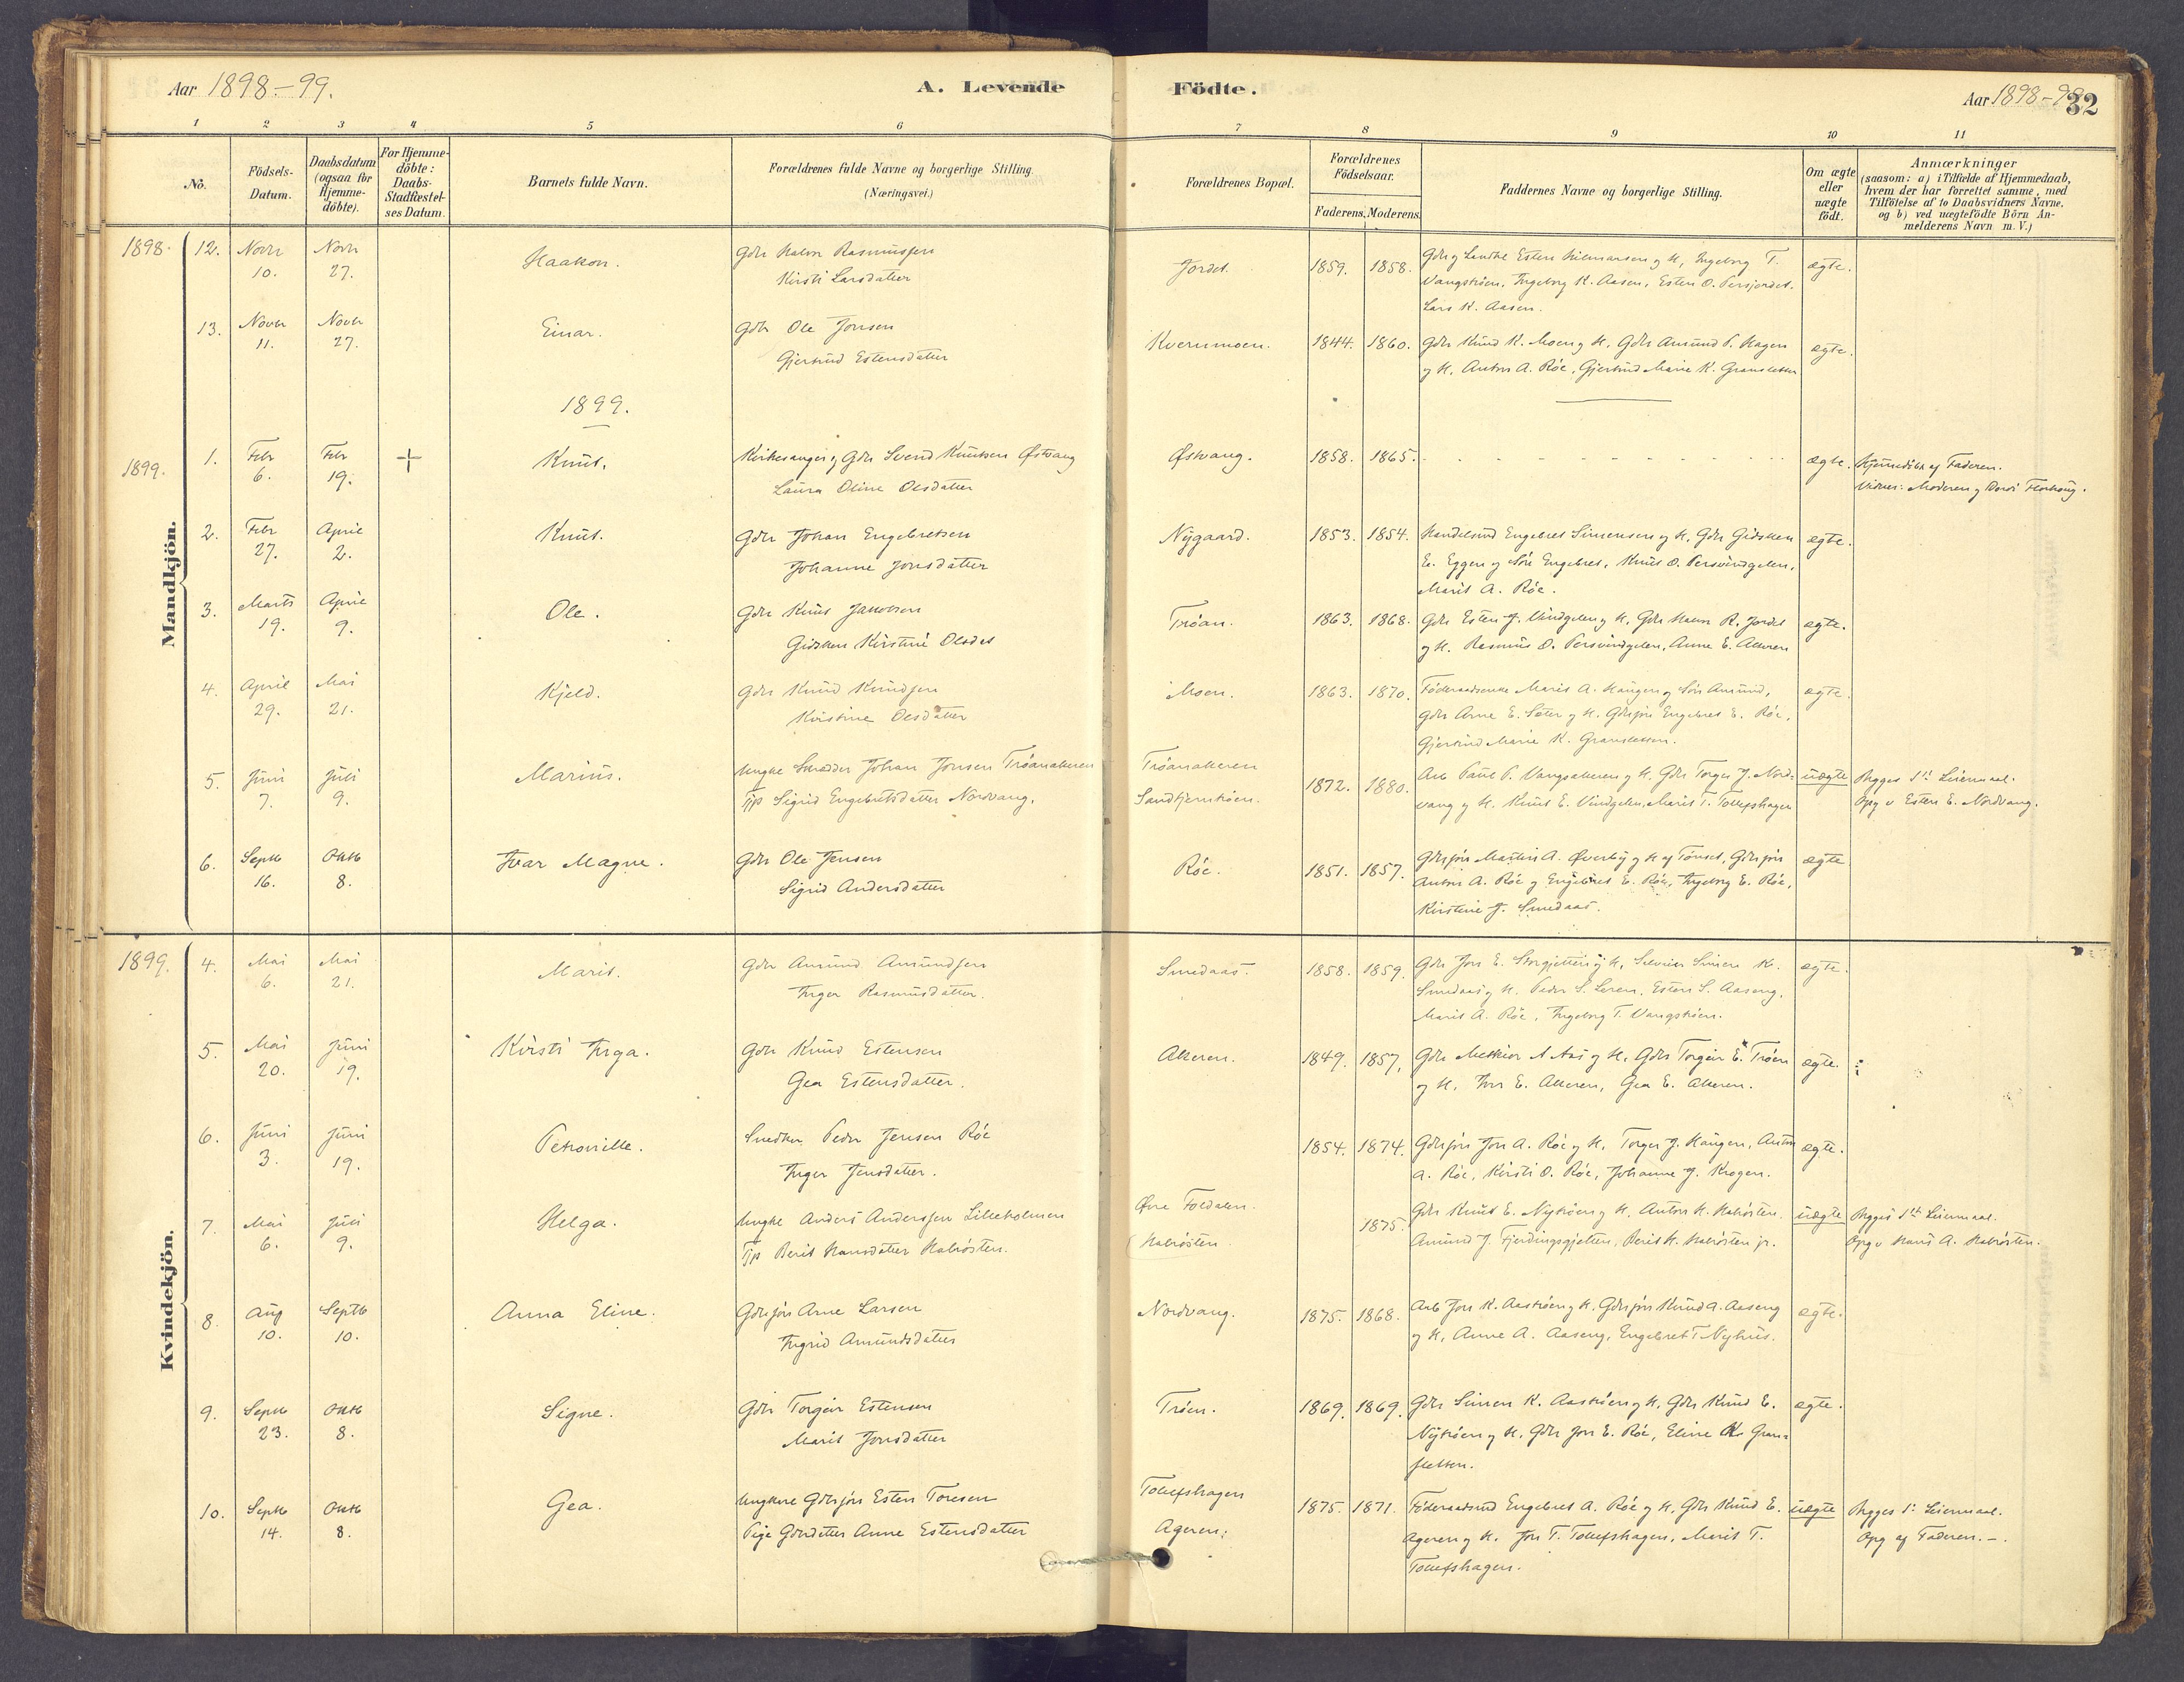 Aar 1898-99.
A. Levende
Födte.
Aar 1898-99
32
1 2 3 4 5 6 7 8 9 10 11
No.
Födsels-
Datum.
Daabsdatum
(ogsaa for
Hjemme-
döbte).
For Hjemme-
döbte:
Daabs-
Stadfæstel-
ses Datum.
Barnets fulde Navn.
Forældrenes fulde Navne og borgerlige Stilling.
(Næringsvei.)
Forældrenes Bopæl.
Forældrenes
Födselsaar.
Faderens. Moderens.
Faddernes Navne og borgerlige Stilling.
Om ægte
eller
uægte
födt.
Anmærkninger
(saasom: a) i Tilfælde af Hjemmedaab,
hvem der har forrettet samme, med
Tilföielse af to Daabsvidners Navne,
og b) ved uægtefödte Börn An-
melderens Navn m. V.)
Mandkjön.
1898. 12. Novbr 10. Novbr 27. Haakon. Gdbr Halvor Rasmussen
Kirsti Larsdatter
Jordet. 1859. 1858. Ingeborg T.
Vangstrøen, Ingeborg K. Aasen, Esten O. Persjordet.
Lars K. Aasen.
ægte.
13. Novbr 11. Novbr 27. Einar. Gdbr Ole Jonsen
Gjertrud Estensdatter
Kvernmoen. 1844. 1860. Gdbr Knud K. Moen og H. Gdbr Amund P. Hagen
og H. Anton A. Röe, Gjertrud Marie K. Gransletten
ægte.
1899.
1899. 1. Febr 6. Febr 19. + Knut. Kirkesanger og Gdbr Svend Knutsen Østvang
Laura Oline Olsdatter
Østvang. 1858. 1865. ægte. Hjemmedöbt af Faderen.
Vidner: Moderen og
2. Febr 27. April 2. Knut. Gdbr Johan Engebretsen
Johanne Jonsdatter
Nygaard. 1853. 1854. Handelsmd Engebret Simensen og H. Gdbr Gidsken
E. Eggen og Sön Engebret, Knut O. Persvindgelen,
Marit A. Röe.
ægte.
3. Marts 19. April 9. Ole. Gdbr Knut Jakobsen
Gidsken Kirstine Olsdat
Tröan. 1863. 1868. Gdbr Esten J. Vindgelen og H. Gdbr Halvor R. Jordet
og H. Rasmus O. Persvindgelen, Anne E. Akeren
ægte.
4. April 29. Mai 21. Kjeld. Gdbr Knud Knudsen
Kristine Olsdatter
Moen. 1863. 1870. Föderaadsenke Marit A. Haugen og Sön Amund,
Gdbr Arne E. Sæter og H. Gdbrsön Engebret E. Röe,
Gjertrud Marie K. Gransletten.
ægte.
5. Juni 7. Juli 9. Marius. Ungke Skrædder Johan Jonsen Tröanakeren
Pige Sigrid Engebretsdatter Nordvang.
Tröanakeren
Sandtjernkoien. 1872. 1880. Arb Paul P. Vangsakeren og H. Gdbr Torger J. Nord-
vang og H. Knut E. Vindgelen, Marit T. Tollefshagen
uægte Begges 1ste Leiermaal.
Opg v Esten E. Nordvang.
6. Septb 16. Oktb 8. Ivar Magne. Gdbr Ole Jensen
Sigrid Andersdatter
Röe. 1851. 1857. Gdbrsön Martin A. Øverby og H af Tönset, Gdbrsön
Anton A. Röe og Engebret E. Röe, Ingeborg E. Röe,
Kirstine J. Smedaas.
ægte
Kvindekjön.
1899. 4. Mai 6. Mai 21. Marit. Gdbr Amund Amundsen
Inger Rasmusdatter.
Smedaas. 1858. 1859. Gdbr Jon E. Storgjetten og H,
Smedaas og H. Peder S. Leren, Esten S. Aaseng,
Marit A. Röe, Ingeborg T. Vangstrøen.
ægte.
5. Mai 20. Juni 19. Kirsti Inga. Gdbr Knud Estensen
Gea Estensdatter.
Akeren. 1849. 1857. Gdbr Melkior A Aas og H. Gdbr Torgeir E. Tröen
og H. Iver E. Akeren, Gea E. Akeren.
ægte.
6. Juni 3. Juni 19. Petronille. Snedker Peder Jensen Röe
Inger Jensdatter.
1854. 1874. Gdbrsön Jon A. Röe og H. Torger J. Haugen, Anton
A. Röe, Kirsti O. Röe, Johanne J. Krogen.
ægte.
7. Mai 6. Juli 9. Helga. Ungke Anders Anderssen Lilleholmen
Pige Berit Hansdatter Kalrösten.
Øvre Foldalen.
Kalrösten 1875. Gdbr Knut E. Nytröen og H. Anton H. Kalrösten.
Amund J. Fjerdingsgjelten, Berit H. Kalrösten jr.
uægte Begges 1ste Leiermaal.
Opg v Hans A. Kalrösten.
8. Aug 10. Septb 10. Anna Eline. Gdbrsön Arne Larsen
Ingrid Amundsdatter
Nordvang. 1875. 1868. Arb Jon K. Aaströen og H. Gdbrsön Knud A. Aaseng
og H, Anne A. Aaseng, Engebret T Nyhus.
ægte.
9. Septb 23. Oktb 8. Signe. Gdbr Torgeir Estensen
Marit Jonsdatter
Tröen. 1869. 1869. Gdbr Simen K. Aaströen og H. Gdbr Knud E.
Nytröen og H. Gdbr Jon E. Röe, Eline K. Gran-
sletten.
ægte.
10. Septb 14. Oktb 8. Gea. Ungkare Gdbrsön Esten Toresen
Pige Gdbrdatter Anne Estensdatter
Tollefshagen
Ageren: 1875. 1871. Föderaadsmd Engebret A. Röe og H. Gdbr Knud E.
Ageren og H. Jon T. Tollefshagen, Marit T.
Tollefshagen.
uægte Begges 1. Leiermaal.
Opg af Faderen. -.